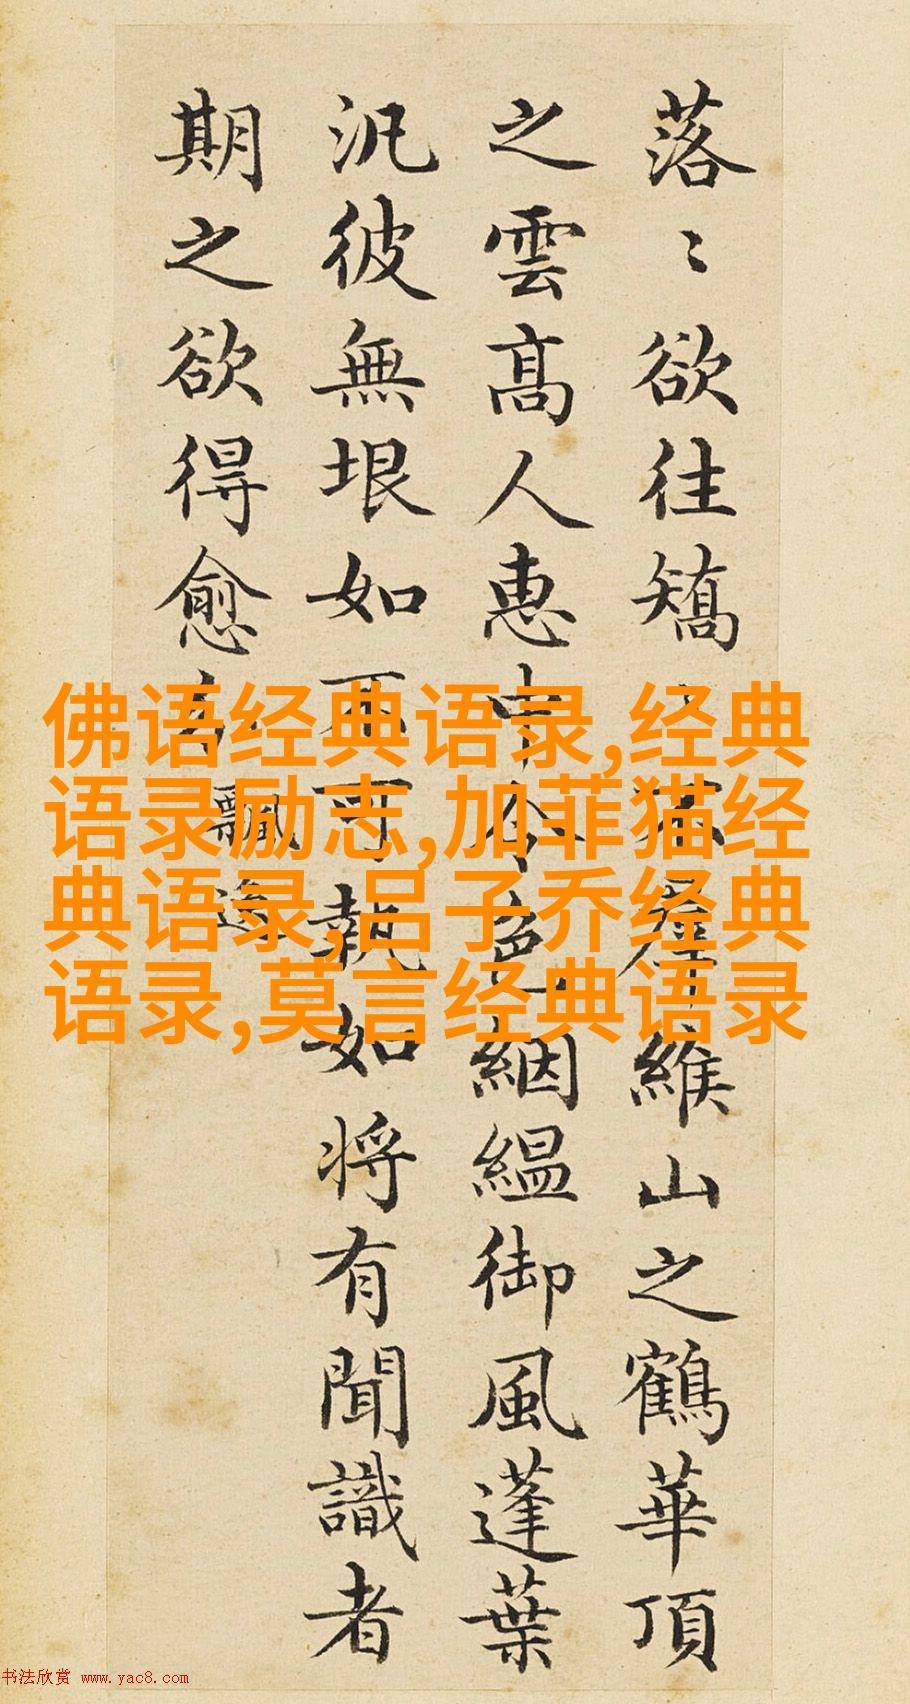 落〻欲往矯〻不羣緱山之鶴華頂
之雲高人惠中令色絪縕御風蓬葉
汎彼無垠如不可執如将有聞識者
期之欲得愈分
飄逸
佛语经典语录,经典
语录励志,加菲猫经
典语录,吕子乔经典
语录,莫言经典语录
书法欣赏 www.yac8.com